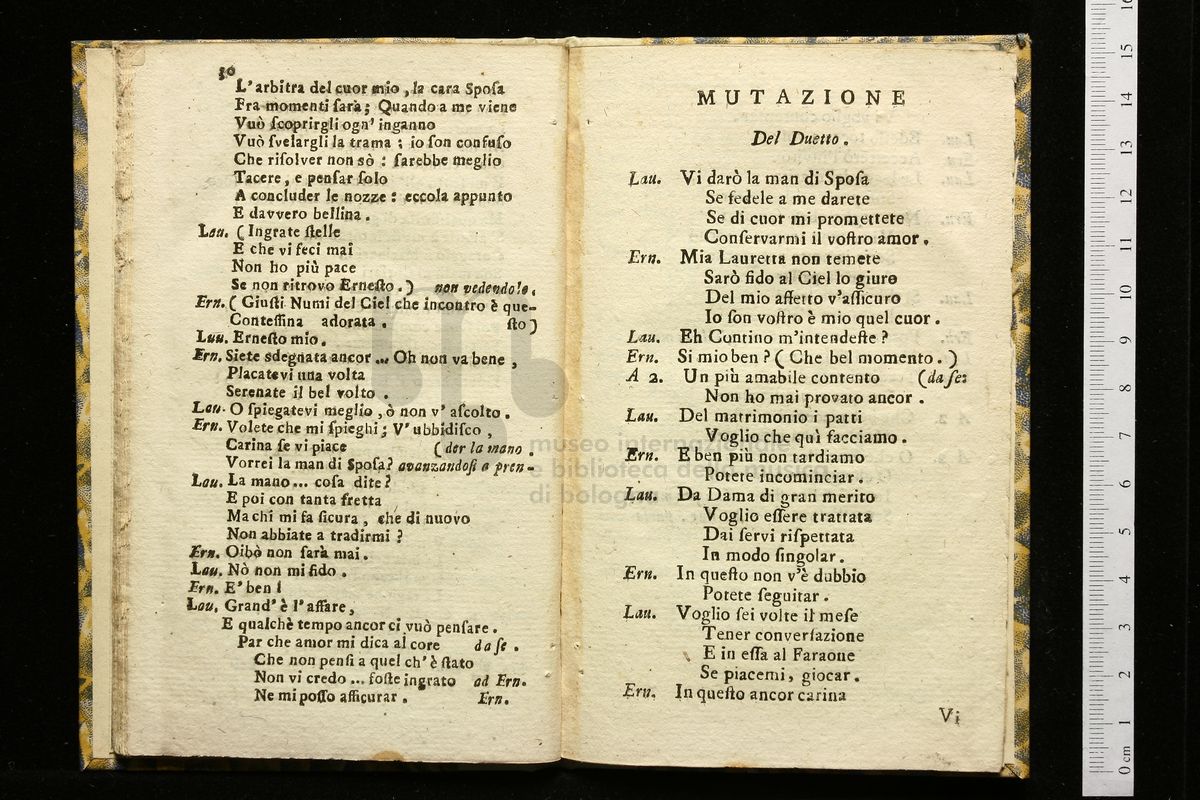 30
L'arbitra del cuor mio, la cara Sposa
Fra momenti sarà; Quando a me viene
Vuò scoprirgli ogn' inganno
Vuò svelargli la trama; io son confuso
Che risolver non sò: sarebbe meglio
Tacere, e pensar solo
A concluder le nozze: eccola appunto
E davvero bellina.
Lau. (Ingrate stelle
E che vi feci mai
Non ho più pace
Se non ritrovo Ernesto.) non vedendolo.
Ern. (Giusti Numi del Ciel che incontro è que-
Contessina adorata. sto)
Lau. Ernesto mio.
Ern. Siete sdegnata ancor ... Oh non va bene,
Placatevi una volta
Serenate il bel volto.
Lau. O spiegatevi meglio, ò non v' ascolto.
Ern. Volete che mi spieghi; V' ubbidisco,
Carina se vi piace (der la mano.
Vorrei la man di Sposa? avanzandosi a pren-
Lau. La mano ... cosa dite?
E poi con tanta fretta
Ma chi mi fa sicura, che di nuovo
Non abbiate a tradirmi?
Ern. Oibò non sarà mai.
Lau. Nò non mi fido.
Ern. E' ben!
Lau. Grand' è l' affare,
E qualchè tempo ancor ci vuò pensare.
Par che amor mi dica al core da se.
Che non pensi a quel ch' è stato
Non vi credo ... foste ingrato ad Ern.
Ne mi posso assicurar. Ern.
MUTAZIONE
Del Duetto.
Lau. Vi darò la man di Sposa
Se fedele a me darete
Se di cuor mi promettete
Conservarmi il vostro amor.
Ern. Mia Lauretta non temete
Sarò fido al Ciel lo giuro
Del mio affetto v'assicuro
Io son vostro è mio quel cuor.
Lau. Eh Contino m'intendeste?
Ern. Si mio ben? (Che bel momento.)
A 2. Un più amabile contento (da se:
Non ho mai provato ancor.
Lau. Del matrimonio i patti
Voglio che quì facciamo.
Ern. E ben più non tardiamo
Potete incominciar.
Lau. Da Dama di gran merito
Voglio essere trattata
Dai servi rispettata
In modo singolar.
Ern. In questo non v'è dubbio
Potete seguitar.
Lau. Voglio sei volte il mese
Tener conversazione
E in essa al Faraone
Se piacemi, giocar.
Ern. In questo ancor carina
Vi
museo internazionale
e biblioteca della musica
di bologna
0 cm 1 2 3 4 5 6 7 8 9 10 11 12 13 14 15 16